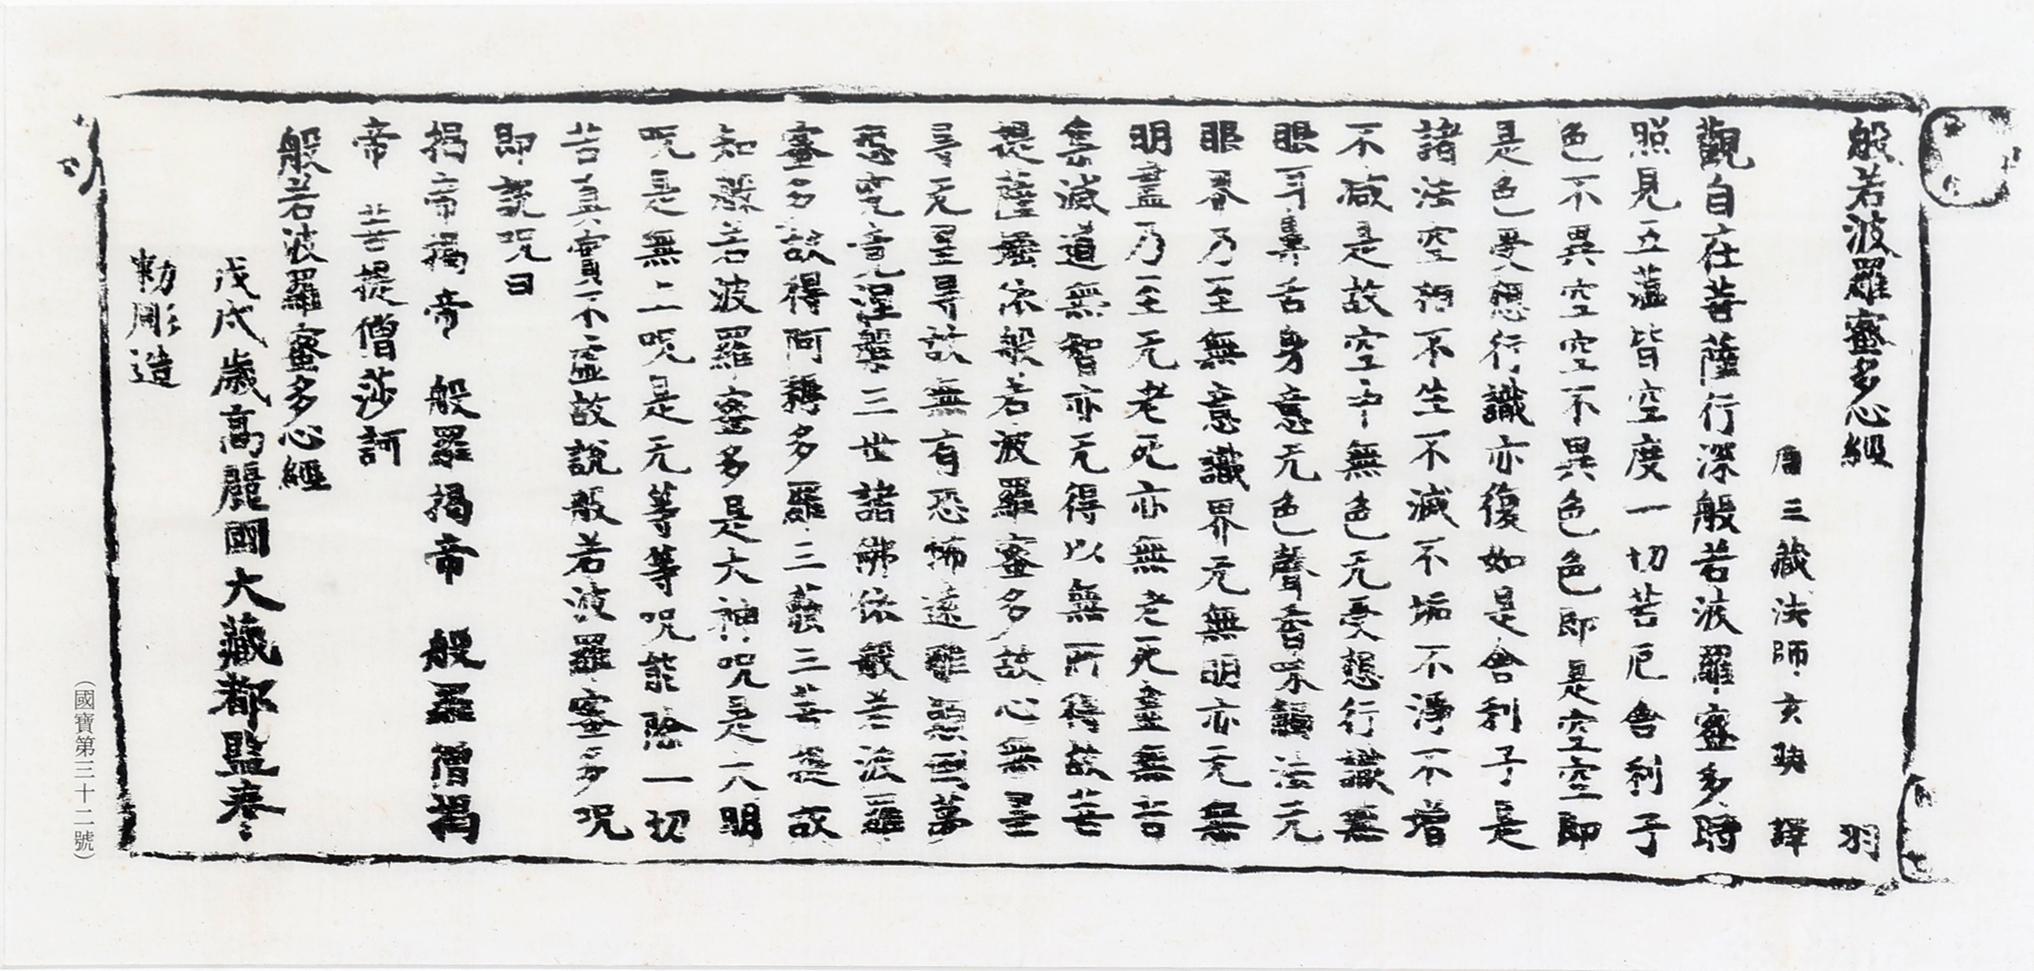 般若波羅蜜多心經 羽
唐三藏法師玄奘 譯
觀自在菩薩行深般若波羅蜜多時
照見五蘊皆空度一切苦厄舍利子
色不異空空不異色色即是空空即
是色受想行識亦復如是舍利子是
諸法空相不生不滅不垢不淨不增
不減是故空中無色无受想行識無
眼耳鼻舌身意无色聲香味觸法无
眼界乃至無意識界无無明亦无無
明盡乃至无老死亦無老死盡無苦
集滅道無智亦无得以無所得故菩
提薩埵依般若波羅蜜多故心無罣
㝵无罣㝵故無有恐怖遠離顚倒夢
想究竟涅槃三世諸佛依般若波羅
蜜多故得阿耨多羅三藐三菩提故
知般若波羅蜜多是大神呪是大明
呪是無上呪是无等等呪能除一切
苦真實不虛故說般若波羅蜜多呪
即說呪曰
揭帝揭帝 般羅揭帝 般羅僧揭
帝 菩提僧莎訶
般若波羅蜜多心經
戊戌歲高麗國大藏都監奉
勅彫造
(國寶第三十二號)